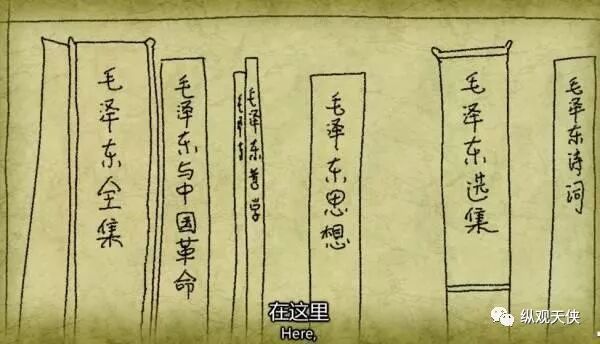 毛泽东全集
毛泽东与中国革命
毛泽东
毛泽东著学
毛泽东思想
毛泽东选集
毛泽东诗词
在这里
Here,
纵观天侠